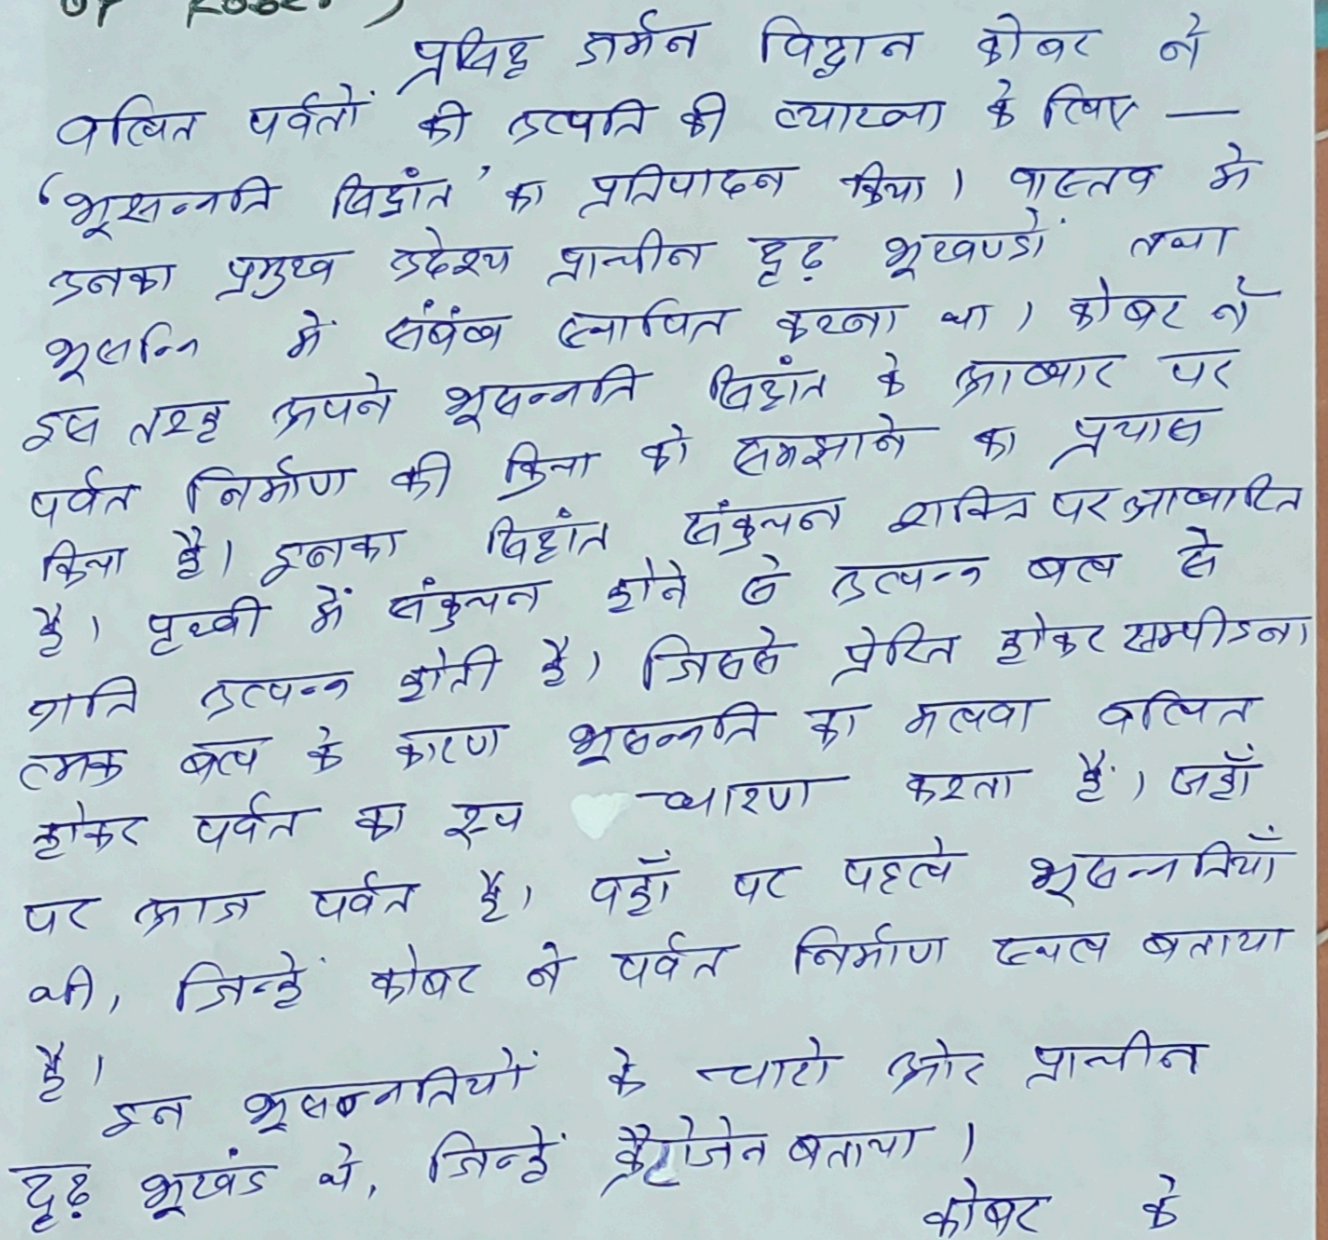 of Kober)
प्रसिद्ध जर्मन विद्वान कोबर ने
वलित पर्वतों की उत्पति की व्याख्या के लिए —
‘भूसन्नति सिद्धांत’ का प्रतिपादन किया। वास्तव मे
उनका प्रमुख उदेश्य प्राचीन दृढ़ भूखण्डों तथा
भूसन्नि में संबंध स्थापित करना था। कोबर ने
इस तरह अपने भूसन्नति सिद्धांत के आधार पर
पर्वत निर्माण की क्रिया को समझाने का प्रयास
किया है। इनका सिद्धांत संकुचन शक्ति पर आधारित
है। पृथ्वी में संकुचन होने से उत्पन्न बल से
गति उत्पन्न होती है। जिससे प्रेरित होकर सम्पीडना
त्मक बल के कारण भूसन्नति का मलवा वलित
होकर पर्वत का रूप धारण करता है। जहाँ
पर आज पर्वत है। वहाँ पर पहले भूसन्नतियाँ
थी, जिन्हें कोबर ने पर्वत निर्माण स्थल बताया
है।
इन भूसन्नतियों के चारो ओर प्राचीन
दृढ़ भूखंड थे, जिन्हें क्रैटोजेन बताया।
कोबर के